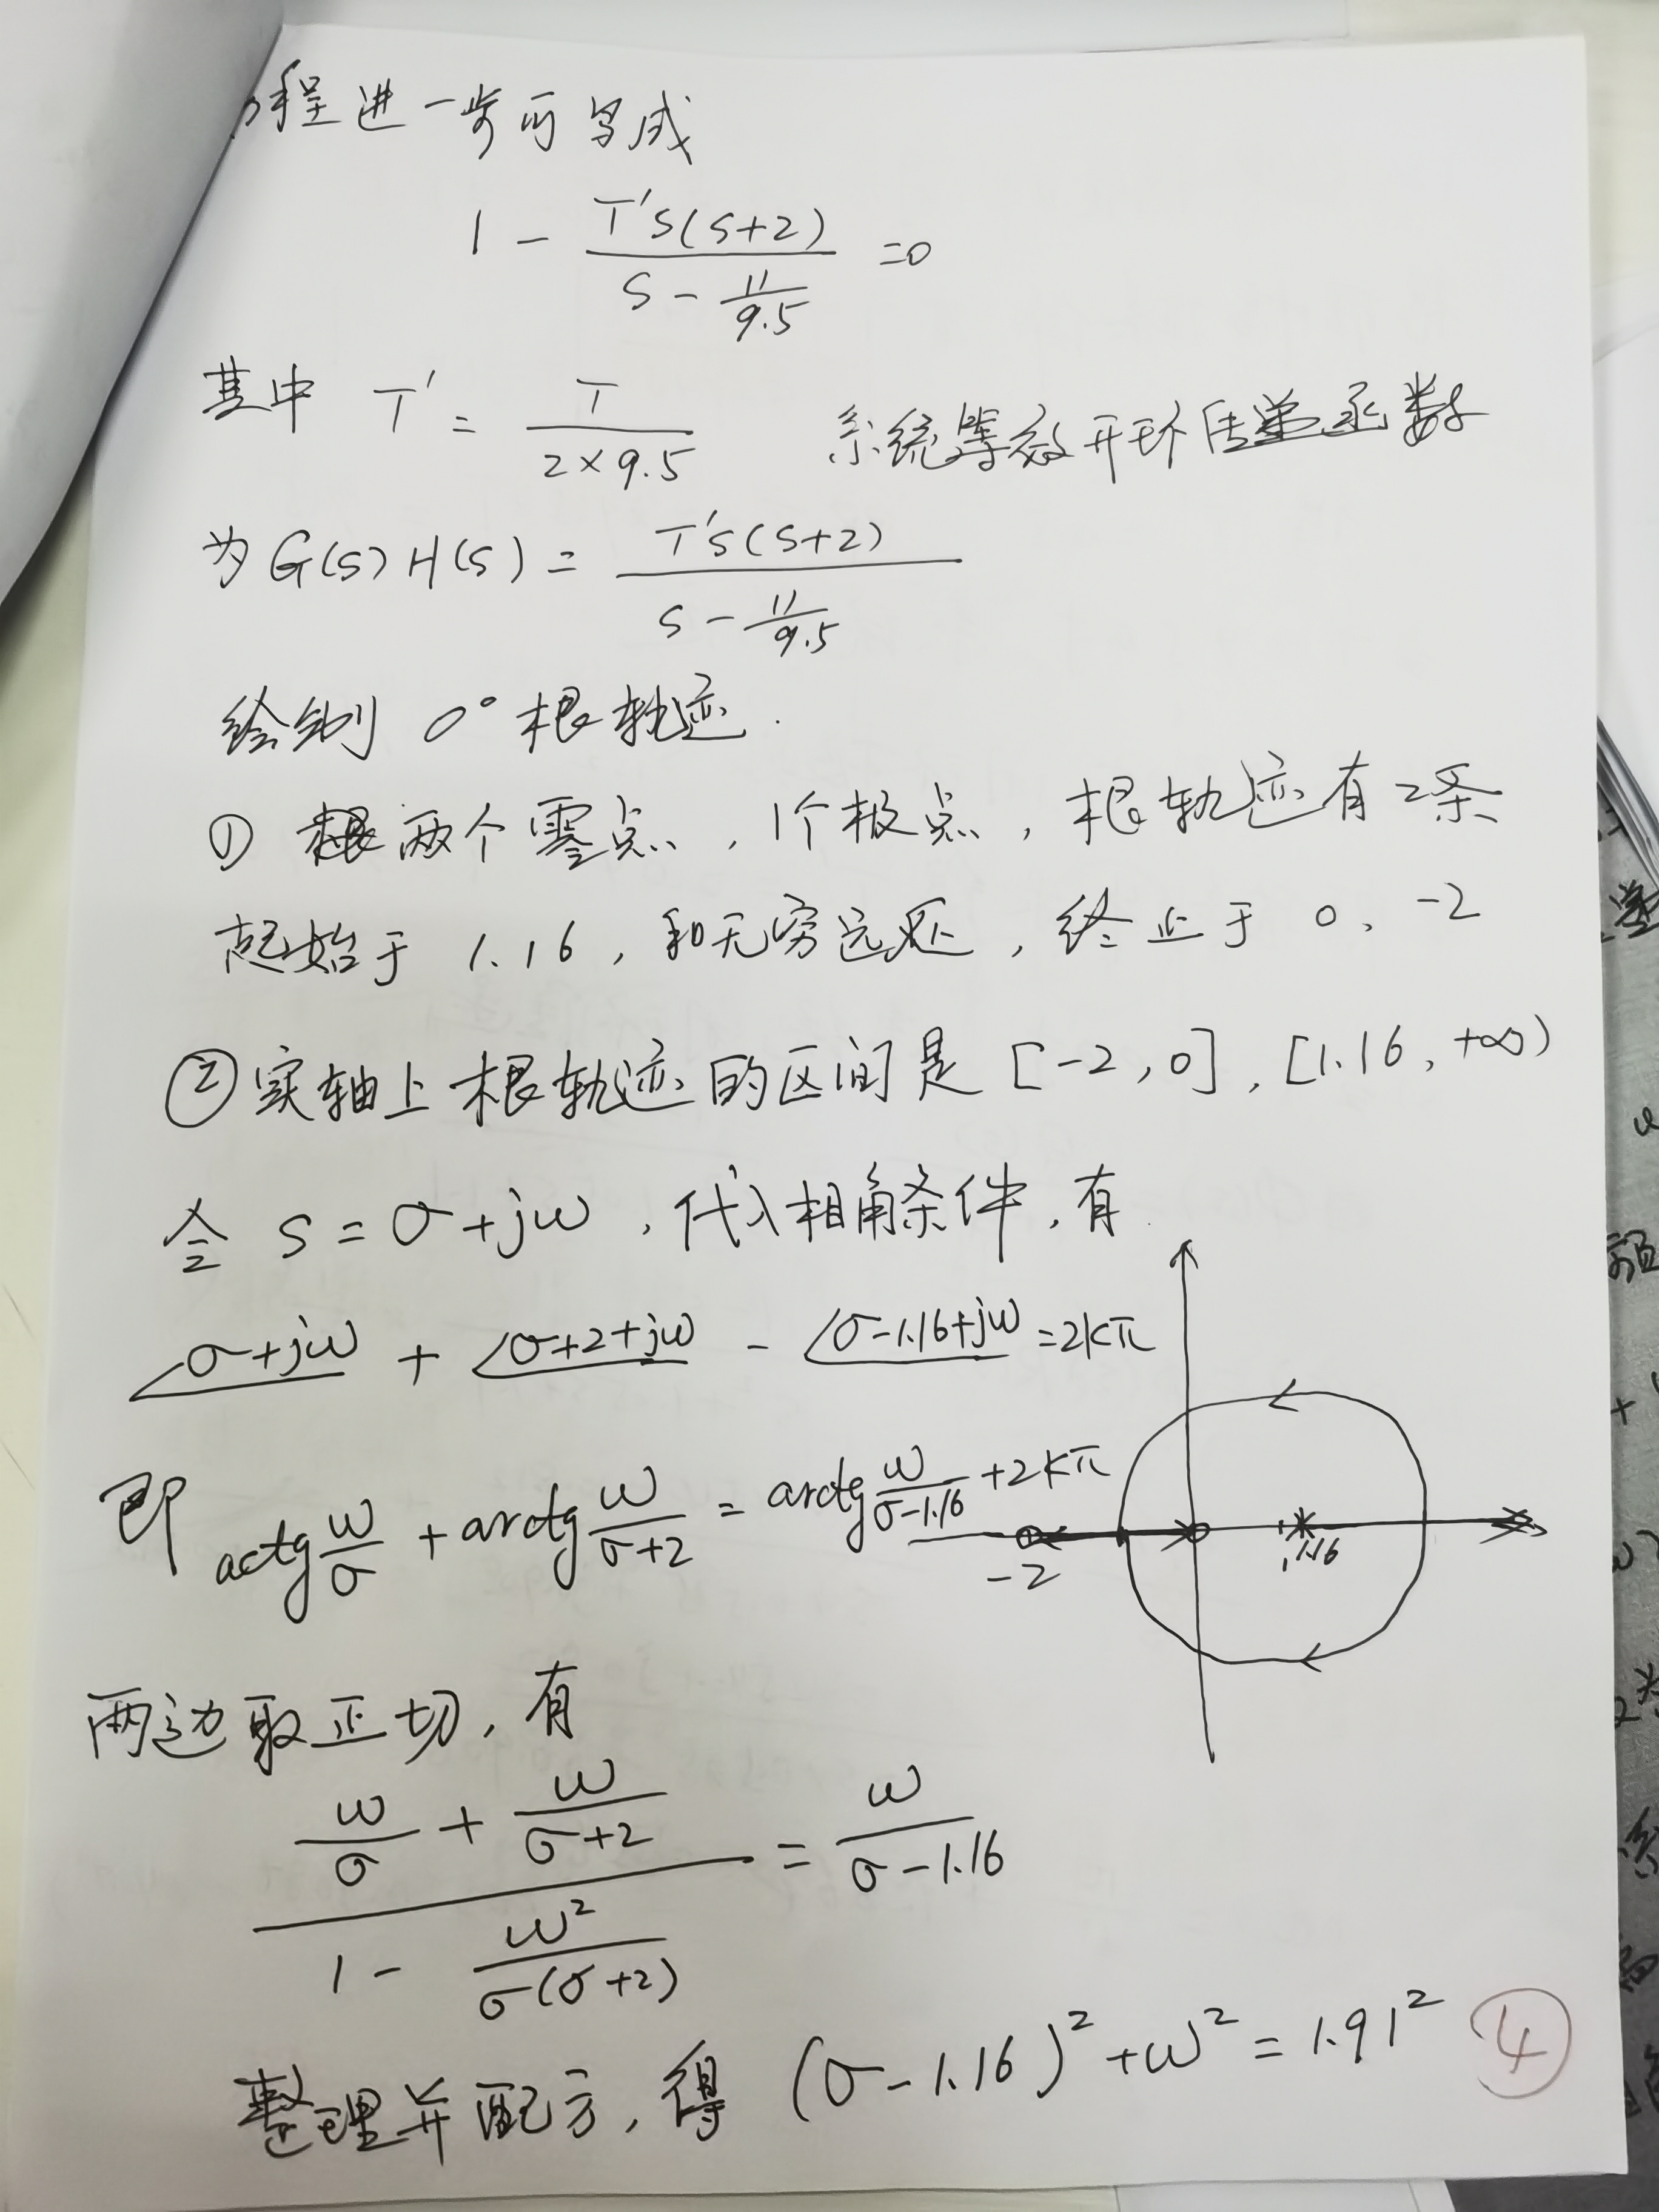 程进一步可写成
1 - T's(s+2) / (s - 11/9.5) = 0
其中 T' = T / (2×9.5) 系统等效开环传递函数
为 G(s)H(s) = T's(s+2) / (s - 11/9.5)
绘制 0° 根轨迹.
① 两个零点, 1个极点, 根轨迹有2条
起始于 1.16, 和无穷远处, 终止于 0、-2
② 实轴上根轨迹的区间是 [-2, 0], [1.16, +∞)
令 s = σ + jω, 代入相角条件, 有
∠σ+jω + ∠σ+2+jω - ∠σ-1.16+jω = 2kπ
即 actg ω/σ + arctg ω/(σ+2) = arctg ω/(σ-1.16) + 2kπ
-2
1.16
两边取正切, 有
(ω/σ + ω/(σ+2)) / (1 - ω²/(σ(σ+2))) = ω/(σ-1.16)
整理并配方, 得 (σ-1.16)² + ω² = 1.91²
④